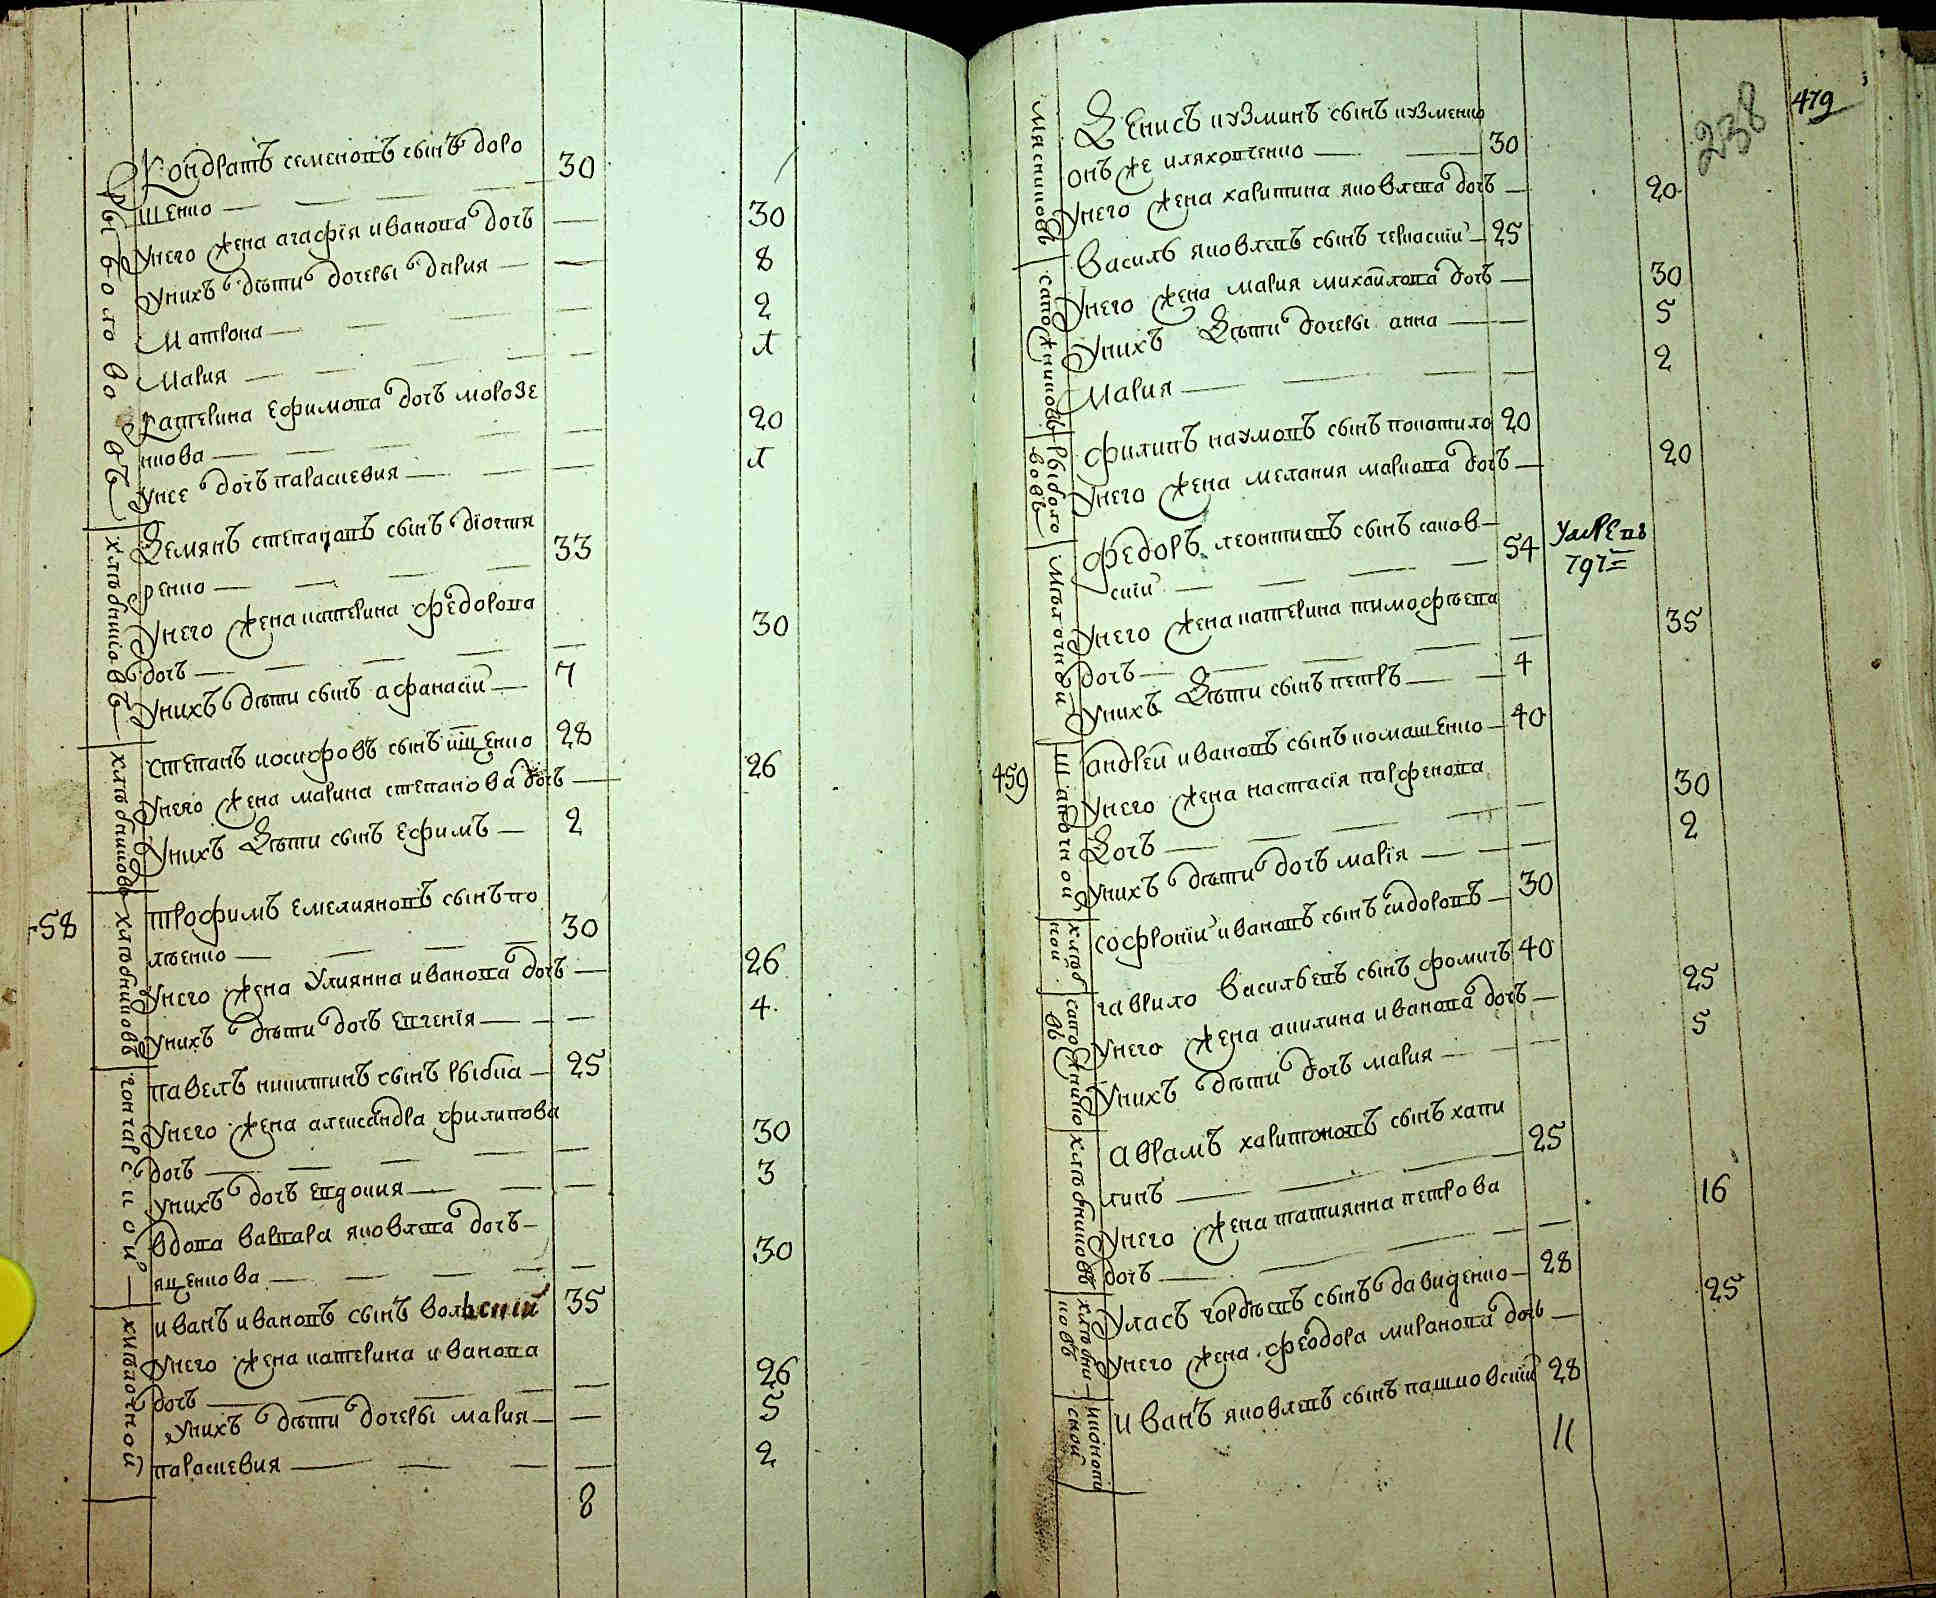 Рыболововъ
Кондратъ семеновъ сынъ доро 30
шенко
Унего жена агафия иванова дочь 30
Унихъ дѣти дочери дария 8
Матрона 2
Мария
катерина ефимова дочь морозе
нкова 20
Унее дочъ параскевия
Хлѣбниковъ
Демянъ степановъ сынъ
ренко 33
Унего жена катерина федорова
дочь 30
Унихъ дѣти сынъ афанасий 7
Хлѣбниковъ
степанъ иосифовъ сынъ ищенко 28
Унего жена марина степанова дочь 26
Унихъ дѣти сынъ ефимъ 2
58
Хлѣбниковъ
трофимъ емелияновъ сынъ по
лѣенко 30
Унего жена Улиянна иванова дочь 26
Унихъ дѣти дочь евгения 4
гончарской
павелъ никитинъ сынъ рыбка 25
Унего жена александра филипова
дочь 30
Унихъ дочь евдокия 3
вдова варвара яковлева дочь
ященкова 30
иванъ ивановъ сынъ волский 35
Унего жена катерина иванова
дочь 26
Унихъ дѣти дочери мария 5
параскевия 2
8
238
479
Мясниковъ
Денисъ кузминъ сынъ кузменко
онъ же кляховченко 30
Унего жена харитина яковлева дочь 20
Сапожниковъ
василь яковлевъ сынъ черкаский 25
Унего жена мария михайлова дочь 30
Унихъ дѣти дочери анна 5
Мария 2
Рыболо
вовъ
филипъ наумовъ сынъ покотило 20
Унего жена мелания маркова дочь 20
федоръ леонтиевъ сынъ саков
ский 54 Умрепъ
797
Унего жена катерина тимофѣева
дочь 35
Унихъ дѣти сынъ петръ 4
459
Шапочной
андрей ивановъ сынъ комашенко 40
Унего жена настасия парфенова
дочь 30
Унихъ дѣти дочь мария 2
Хлѣб
ной
софроний ивановъ сынъ сидоровъ 30
Сапожнико
въ
гаврило василѣевъ сынъ фомичъ 40
Унего жена акилина иванова дочь 25
Унихъ дѣти дочь мария 5
Хлѣбниковъ
аврамъ харитоновъ сынъ хапи
линъ 25
Унего жена татиянна петрова
дочь 16
Хлѣбни
ковъ
Уласъ гордѣевъ сынъ давиденко 28
Унего жена феодора миронова дочь 25
иконопи
сной
Иванъ яковлевъ сынъ пашковский 28
11